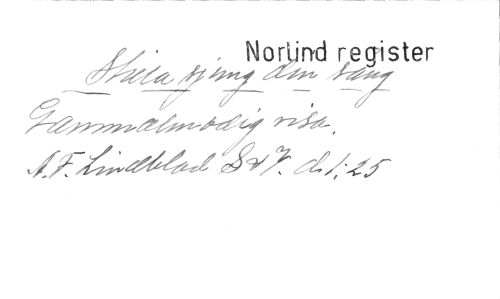 Norlind register
Stilla sjung den sång
Gammalmodig visa.
A. F. Lindblad S & V. d. 1: 25